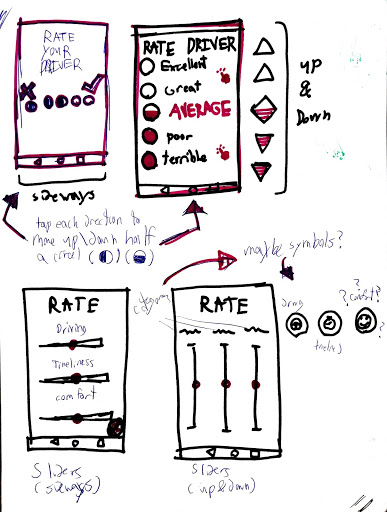 RATE
YOUR
DRIVER
RATE DRIVER
Excellent
Great
AVERAGE
poor
terrible
up
&
Down
sideways
tap each direction to
move up/down half
a circle
maybe symbols?
RATE
Driving
Timeliness
comfort
RATE
driving
? comfort?
?
Sliders
(sideways)
Sliders
(up & down)